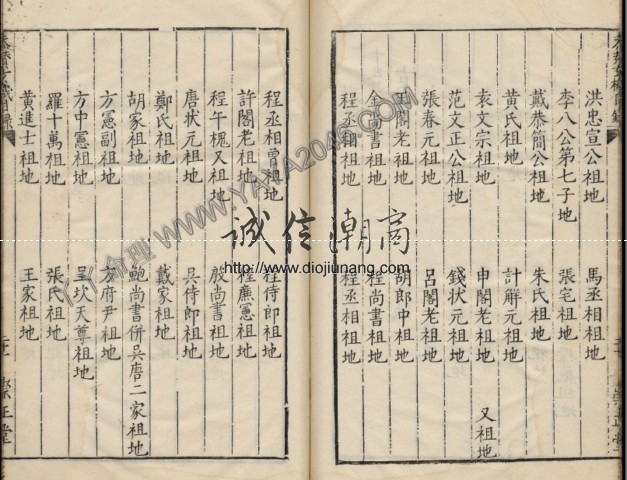 洪忠宣公祖地 馬丞相祖地
李八公第七子地 張宅祖地
戴恭簡公祖地 朱氏祖地
黄氏祖地 計解元祖地
袁文宗祖地 申閣老祖地 又祖地
范文正公祖地 錢狀元祖地
張春元祖地 呂閣老祖地
王閣老祖地 胡郎中祖地
金尚書祖地 程尚書祖地
程丞相祖地 程丞相祖地
程丞相曾祖地 程侍郎祖地
許閣老祖地 程廉憲祖地
程午槐又祖地 殷尚書祖地
唐狀元祖地 吳侍郎祖地
鄭氏祖地 戴家祖地
胡家祖地 鮑尚書併吳唐二家祖地
方憲副祖地 方府尹祖地
方中憲祖地 呈坎天尊祖地
羅十萬祖地 張氏祖地
黃進士祖地 王家祖地
崇正堂
诚信潮商
http://www.diojiunang.com/
丫丫命理 WWW.YAYA2046.COM